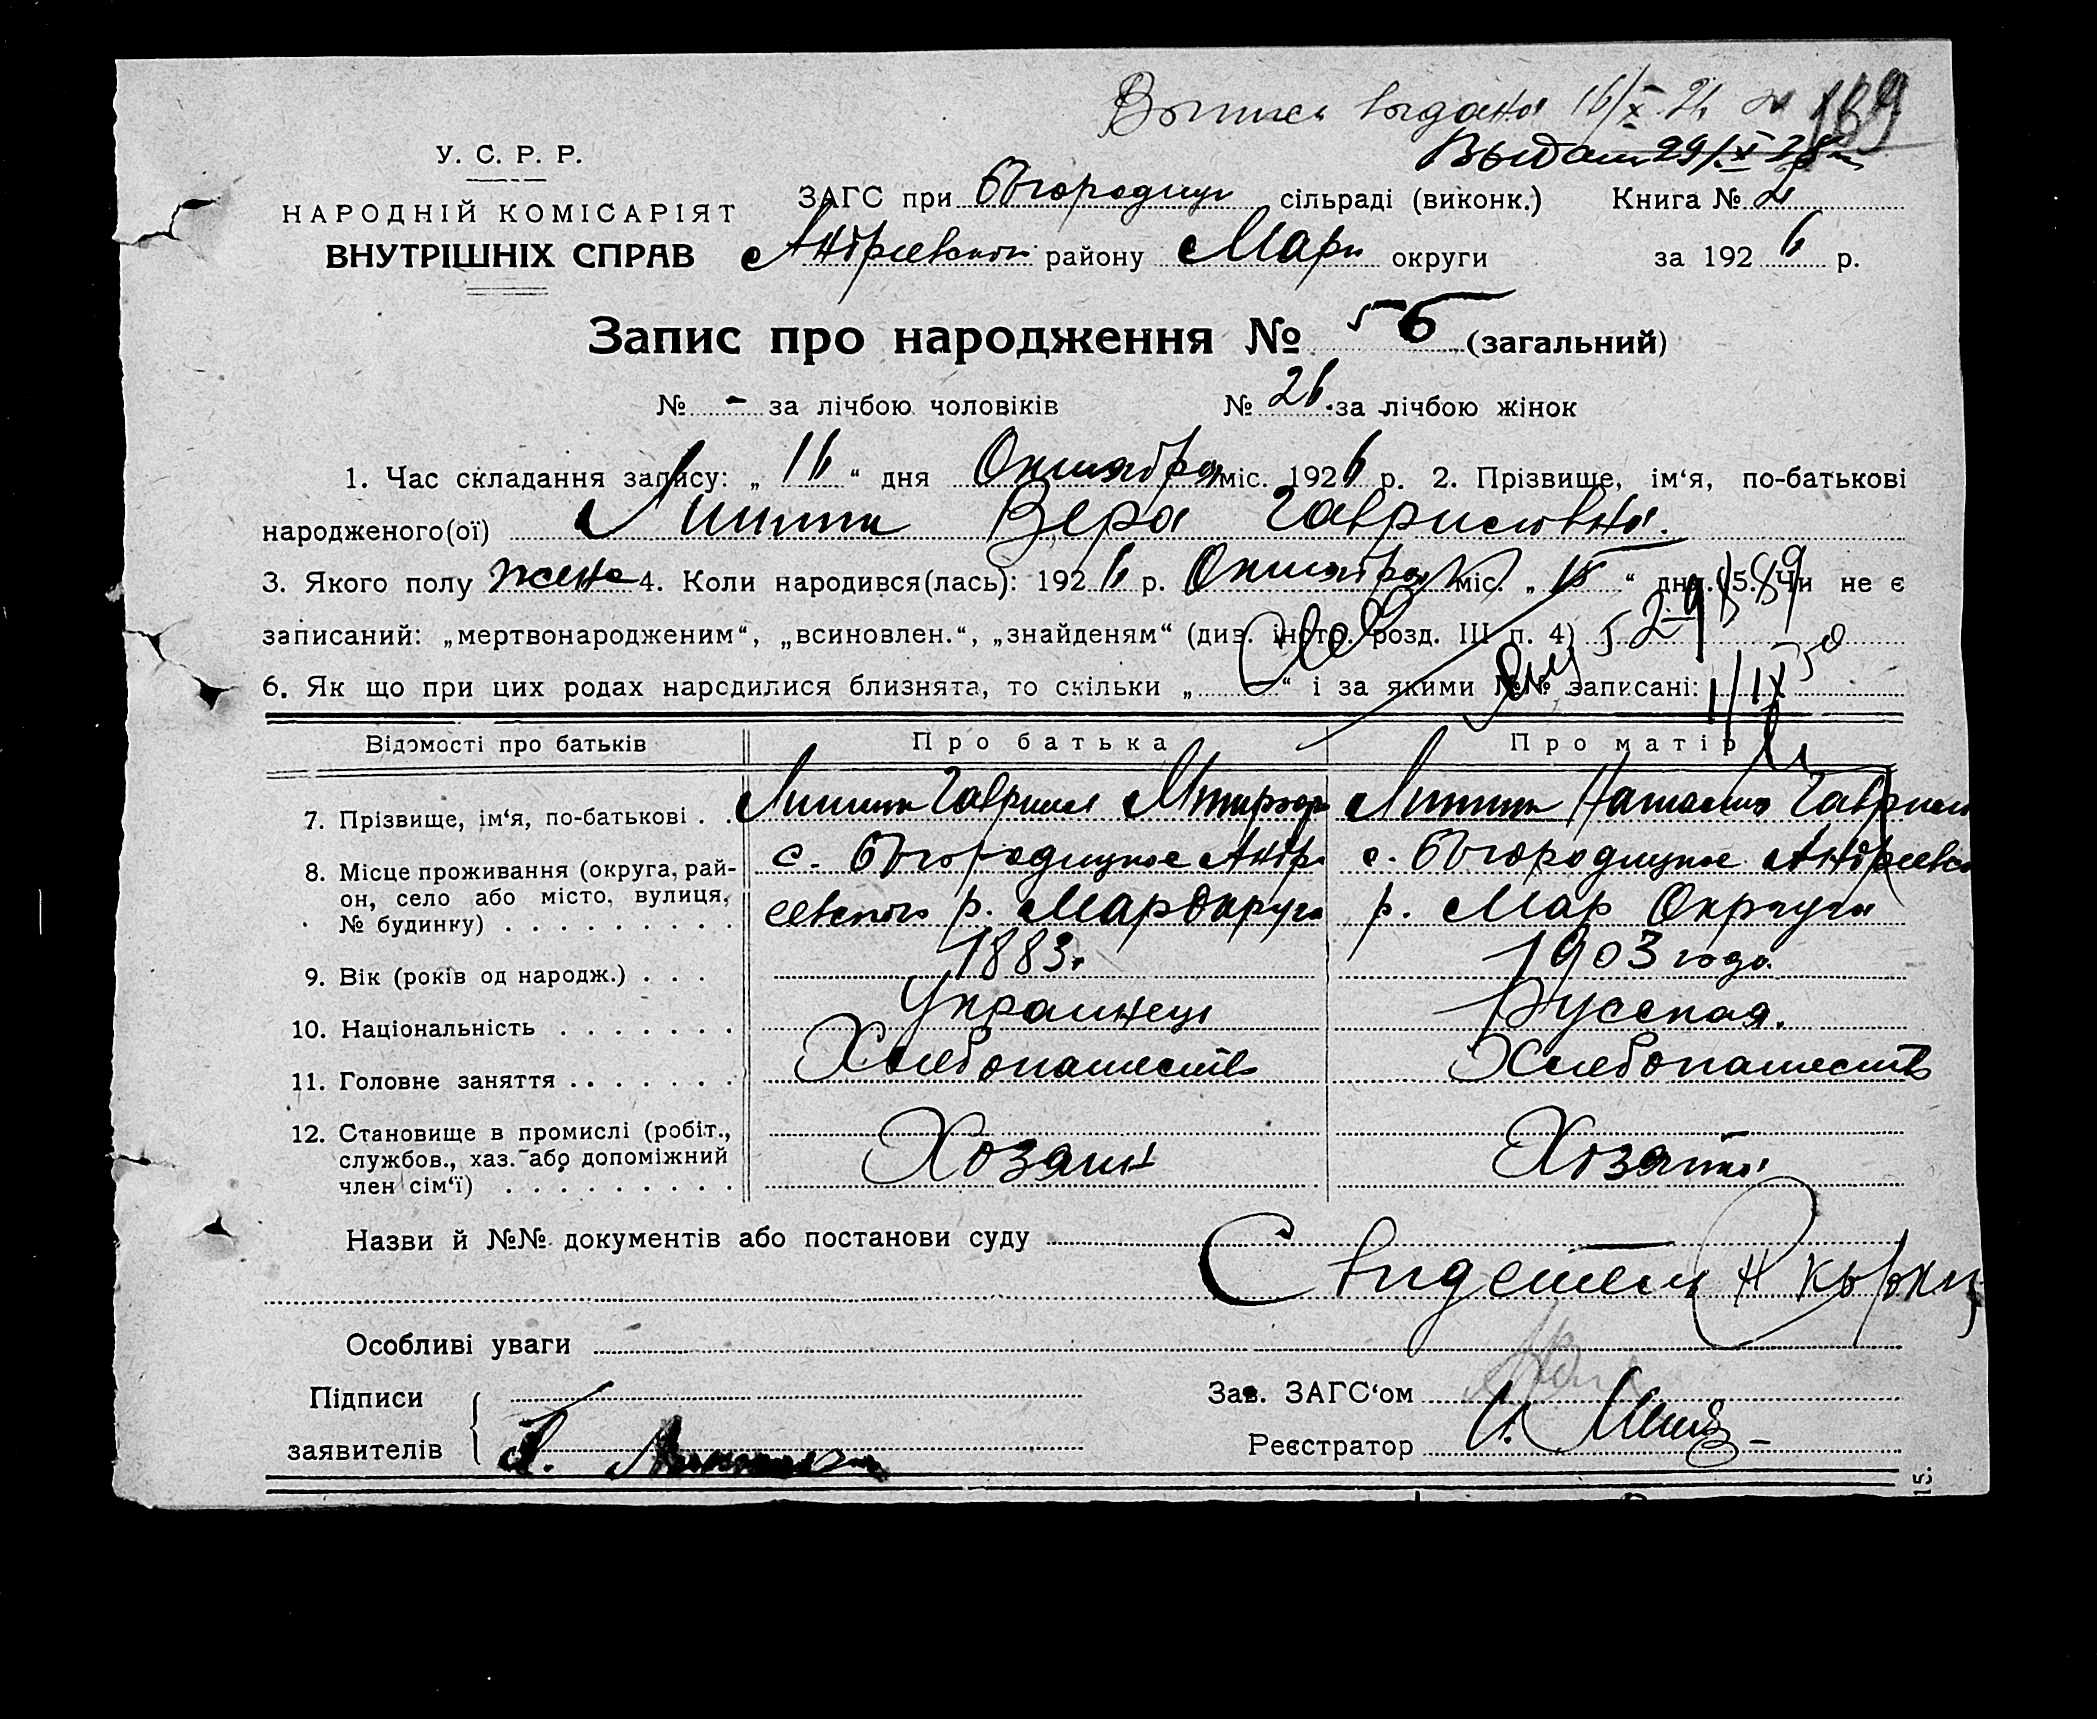 Выпись выдана 16/X 26 189
Выдан 29/XI
У. С. Р. Р.
НАРОДНІЙ КОМІСАРІЯТ
ВНУТРІШНІХ СПРАВ
ЗАГС при Богородиц сільраді (виконк.) Книга № 2
Андреевского району Мари округи за 1926 р.
Запис про народження № 56 (загальний)
№ - за лічбою чоловіків № 26 за лічбою жінок
1. Час складання запису: „ 16 “ дня Октября міс. 1926 р. 2. Прізвище, ім‘я, по-батькові
народженого(ої) Вера Гавриловна.
3. Якого полу жено 4. Коли народився(лась): 1926 р. Октября міс. „ 15 “ дня. 5. Чи не є
записаний: „мертвонародженим“, „всиновлен.“, „знайденям“ (див. інстр. розд. III п. 4)
6. Як що при цих родах народилися близнята, то скільки „ “ і за якими №№ записані:
Відомості про батьків Про батька Про матір
7. Прізвище, ім‘я, по-батькові . . Гавриил
8. Місце проживання (округа, рай- с. Богородицкое Андре с. Богородицкое Андреевск
он, село або місто, вулиця, евского р. МарОкруга р. Мар Округа
№ будинку) . . . . . . . . .
9. Вік (років од народж.) . . . 1883. 1903 года
10. Національність . . . . . . . Украинец Русская.
11. Головне заняття . . . . . . . Хлебопашеств Хлебопашеств
12. Становище в промислі (робіт.,
службов., хаз. або допоміжний Хозяин
член сім‘ї) . . . . . . . . .
Назви й №№ документів або постанови суду
Свидетели
Особливі уваги
Підписи Зав. ЗАГС‘ом
заявителів Реєстратор
15.